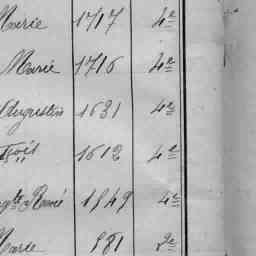 Marie 1717 4e
Marie 1716 4e
Augustin 1631 4e
1612 4e
René 1849 4e
Marie 981 2e